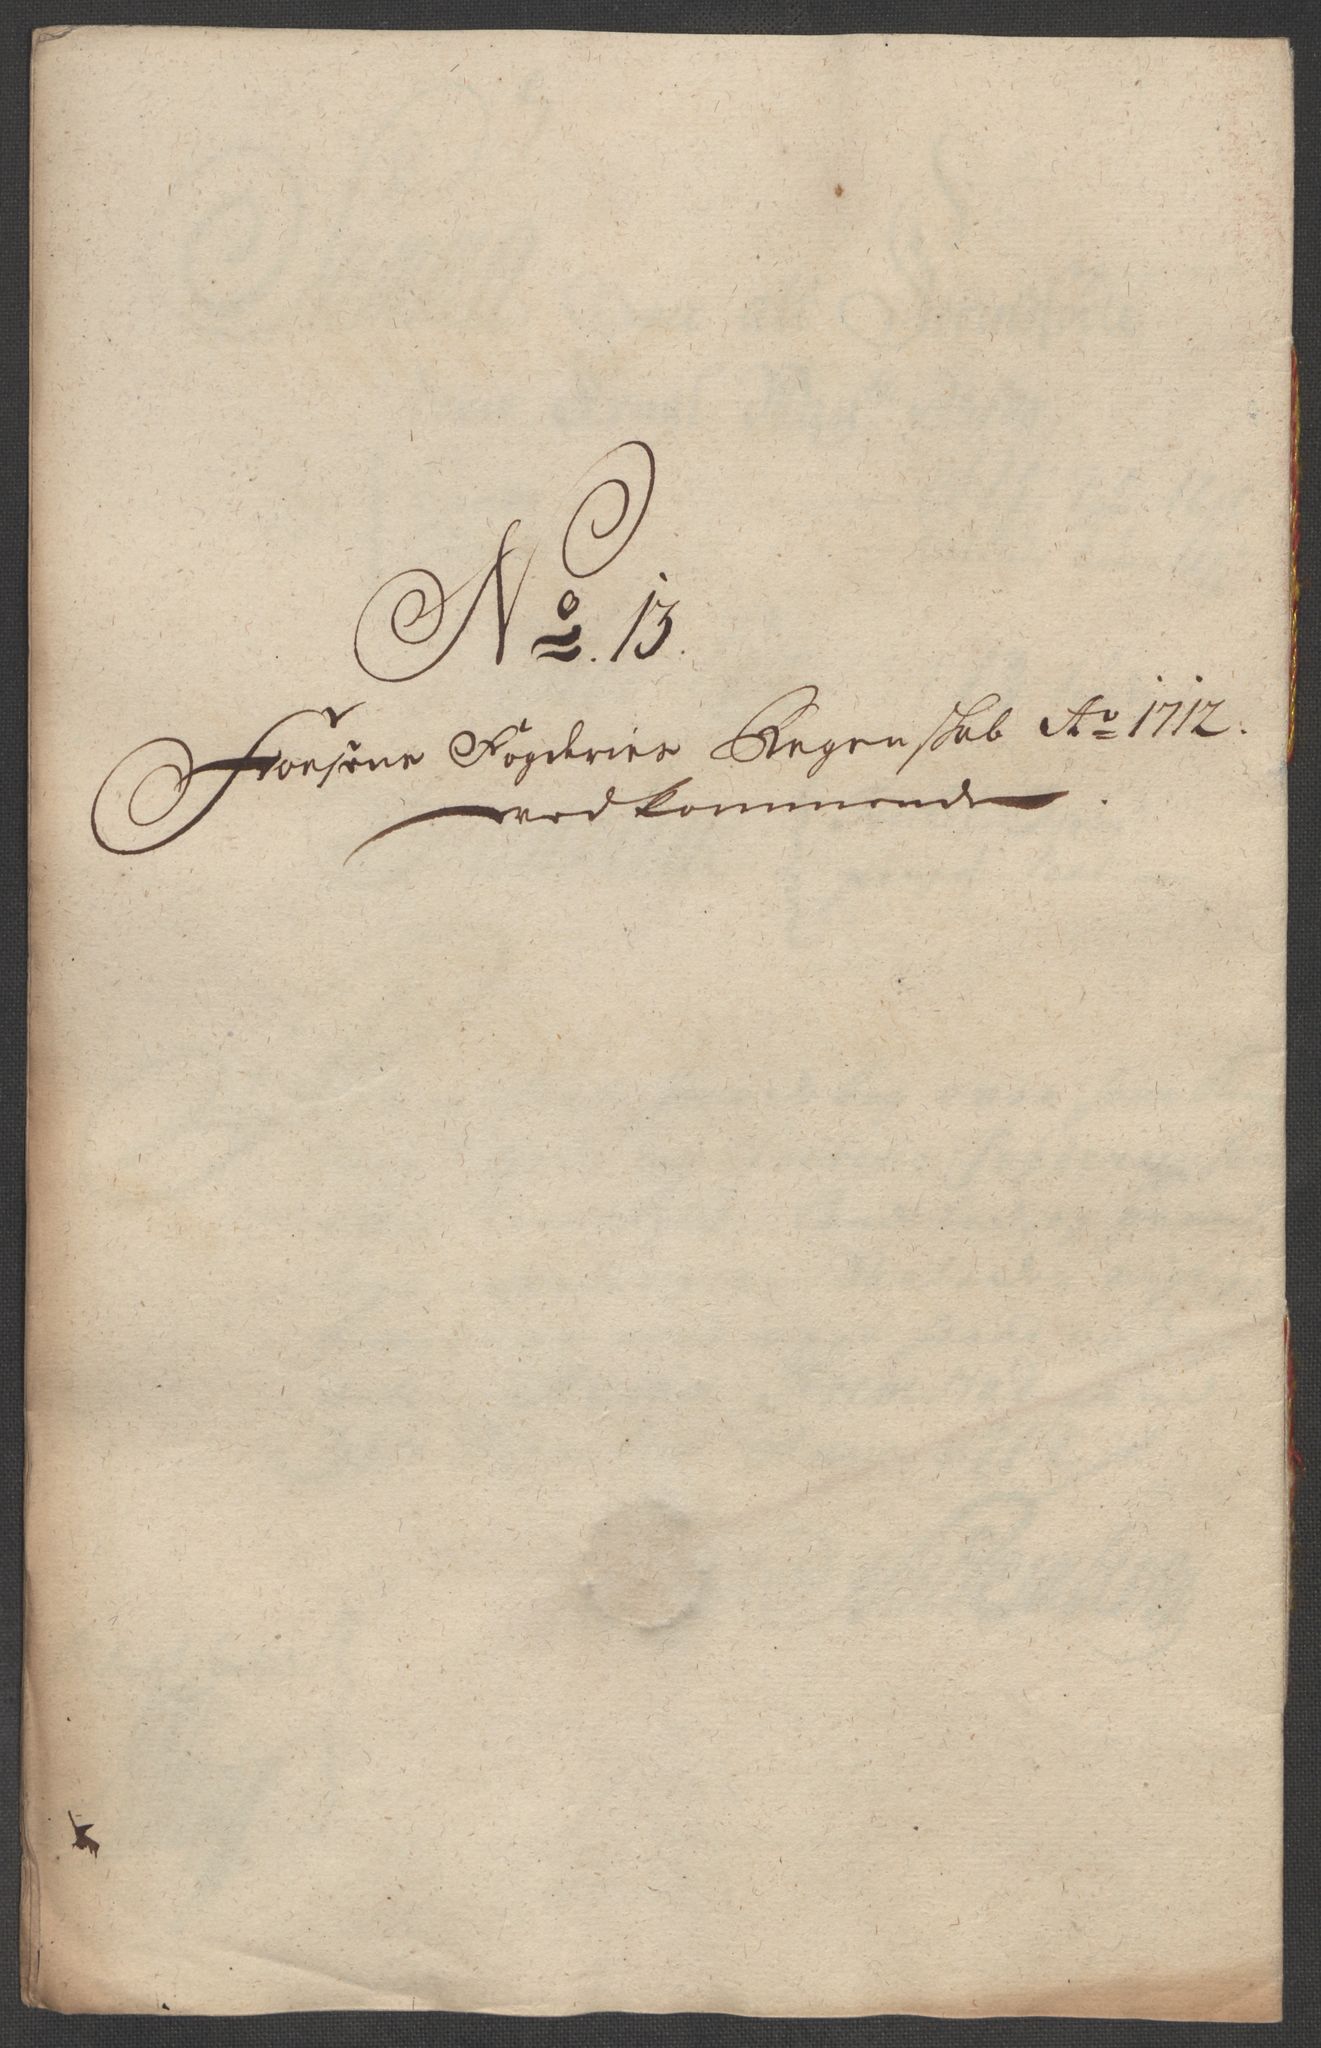 No. 13.
Foesens Fogderies Regenskab Ao 1712.
vedkommende.